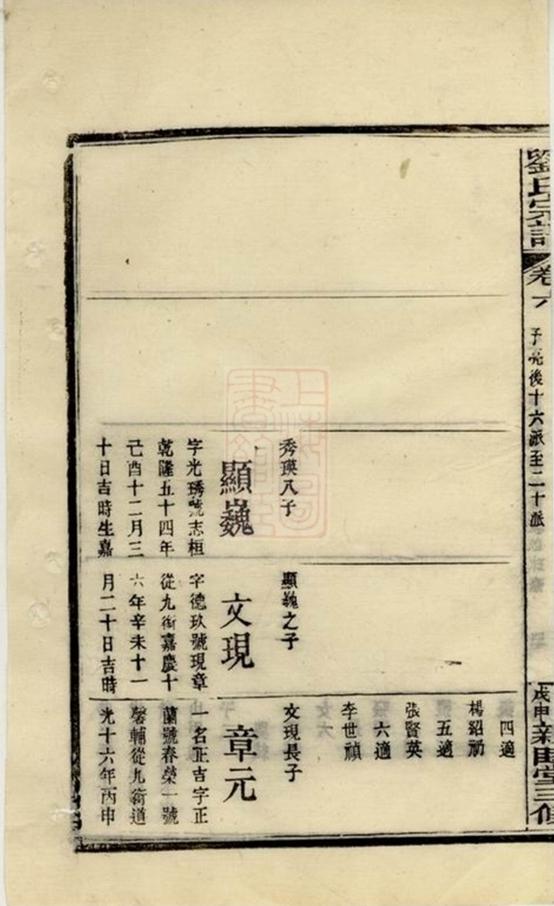 劉氏宗譜
卷六
子亮後十六派至二十派
戊申新
堂三修
秀瑛八子
顯巍
字光琇號志桓
乾隆五十四年
己酉十二月三
十日吉時生嘉
顯巍之子
文現
字德玖號現章
從九銜嘉慶十
六年辛未十一
月二十日吉時
四適
楊紹
五適
張賢英
六適
李世禎
文現長子
章元
一名正吉字正
蘭號春榮一號
馨輔從九銜道
光十六年丙申